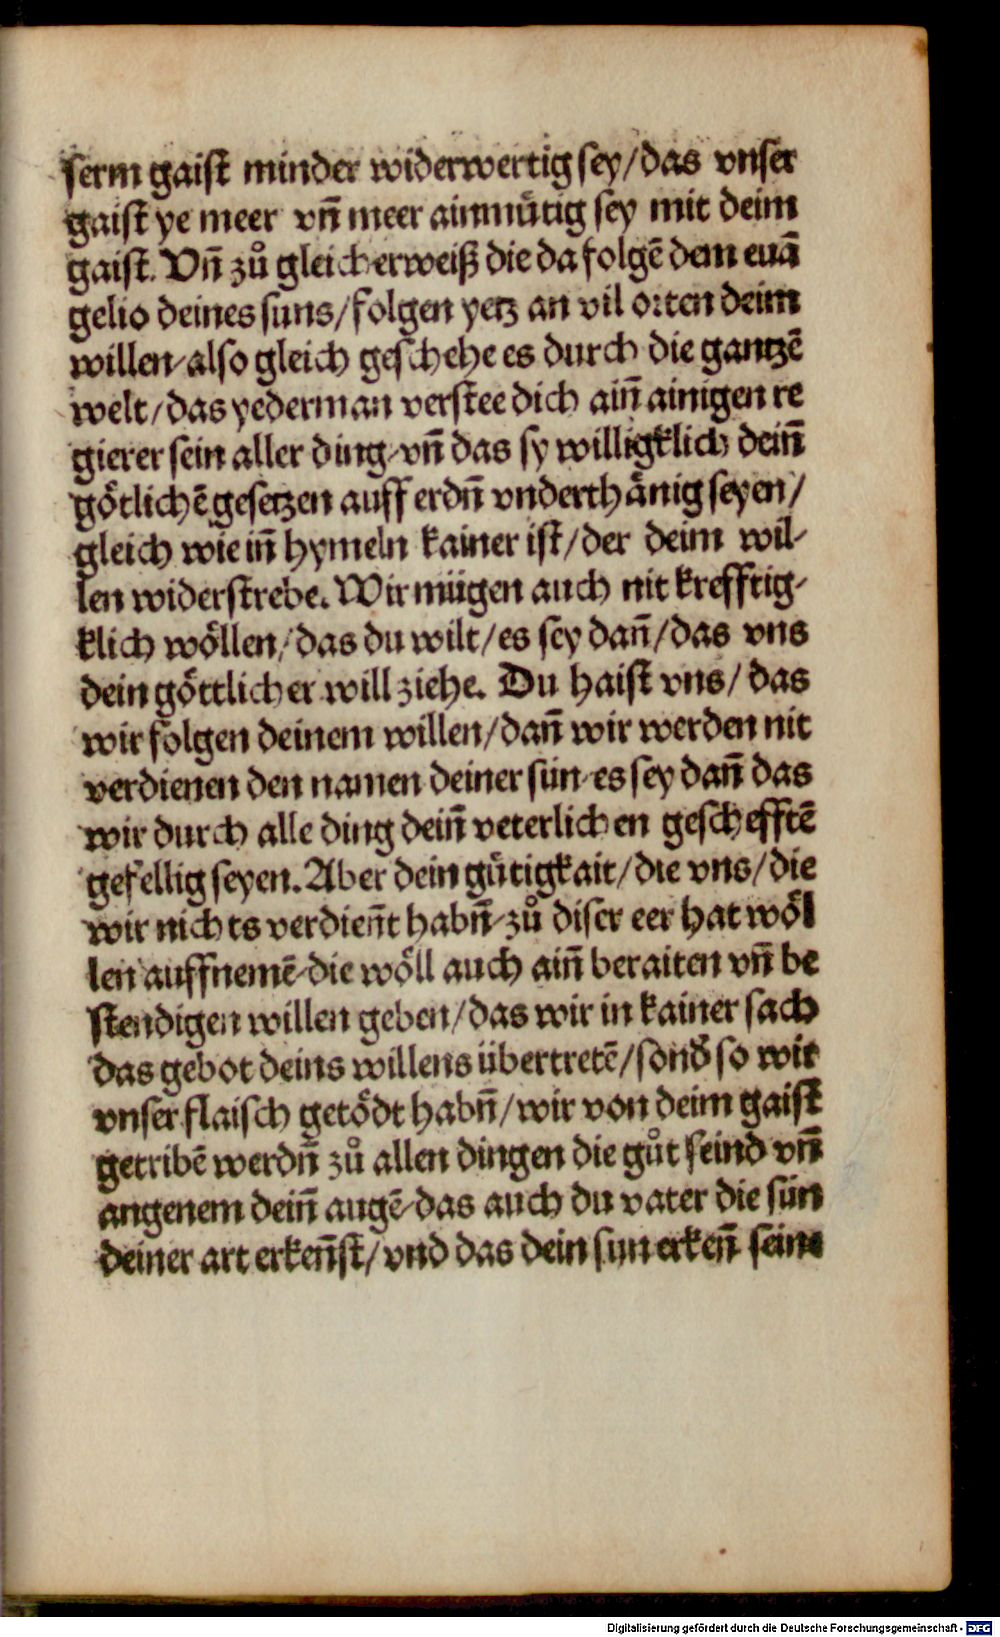 serm gaist minder widerwertig sey/das vnser
gaist ye meer vn̄ meer ainmuͤtig sey mit deim
gaist. Vn̄ zuͦ gleicherweiß die da folgē dem euā
gelio deines suns/folgen yetz an vil orten deim
willen/also gleich geschehe es durch die gantzē
welt/das yederman verstee dich ain̄ ainigen re
gierer sein aller ding/vn̄ das sy willigklich dein̄
goͤtlichē gesetzen auff erdn̄ vnderthaͤnig seyen/
gleich wie in̄ hymeln kainer ist/der deim wil-
len widerstrebe. Wir muͤgen auch nit krefftig-
klich woͤllen/das du wilt/es sey dan̄/das vns
dein goͤttlicher will ziehe. Du haist vns/das
wir folgen deinem willen/dan̄ wir werden nit
verdienen den namen deiner sün/es sey dan̄ das
wir durch alle ding dein̄ veterlichen geschefftē
gefellig seyen. Aber dein guͤtigkait/die vns/die
wir nichts verdien̄t habn̄/zuͦ diser eer hat woͤl
len auffnemē/die woͤll auch ain̄ beraiten vn̄ be
stendigen willen geben/das wir in kainer sach
das gebot deins willens übertretē/sond̄ so wir
vnser flaisch getoͤdt habn̄/wir von deim gaist
getribē werdn̄ zuͦ allen dingen die guͦt seind vn̄
angenem dein̄ augē/das auch du vater die sün
deiner art erken̄st/vnd das dein sun erken̄ seine
Digitalisierung gefördert durch die Deutsche Forschungsgemeinschaft - DFG